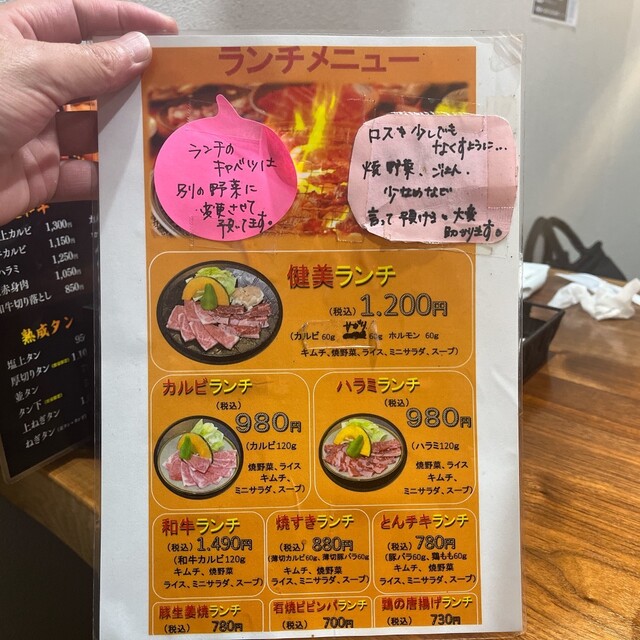 ランチメニュー
ランチの
キャベツは
別の野菜に
変更させて
頂いてます。
ロスを少しでも
なくすように…
焼野菜、ごはん、
少なめなど
言って頂けると大変
助かります。
健美ランチ
(税込)1.200円
(カルビ60g サガリ 60g ホルモン60g
キムチ、焼野菜、ライス、ミニサラダ、スープ)
カルビランチ
(税込)
980円
(カルビ120g
焼野菜、ライス
キムチ、
ミニサラダ、スープ)
ハラミランチ
(税込)
980円
(ハラミ120g
焼野菜、ライス
キムチ、
ミニサラダ、スープ)
和牛ランチ
(税込)1.490円
(和牛カルビ120g
キムチ、焼野菜
ライス、ミニサラダ、スープ)
焼すきランチ
(税込)880円
(薄切カルビ60g、薄切豚バラ60g
キムチ、焼野菜
ライス、ミニサラダ、スープ)
とんチキランチ
(税込)780円
(豚バラ60g、鶏もも60g
キムチ、焼野菜
ライス、ミニサラダ、スープ)
豚生姜焼ランチ
(税込)780円
石焼ビビンバランチ
(税込)700円
鶏の唐揚げランチ
(税込)730円
上カルビ 1,300円
カルビ 1,150円
ハラミ 1,250円
赤身肉 1,050円
和牛切り落とし 850円
熟成タン
塩上タン 95
厚切りタン
並タン
タン下
上ねぎタン
ねぎタン